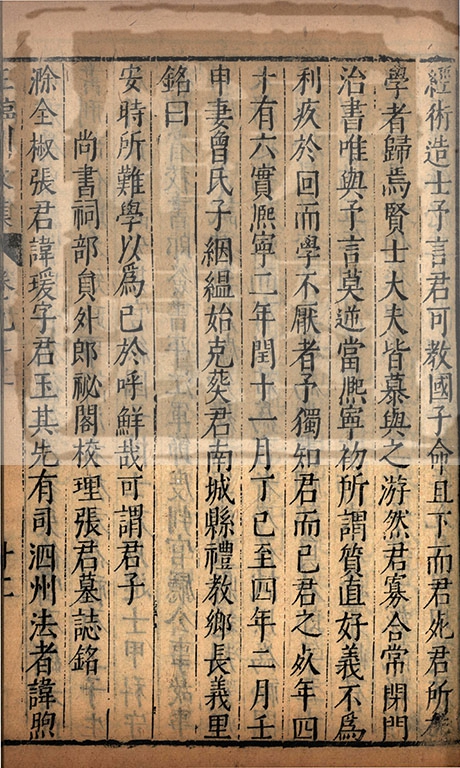 經術造士予言君可教國子命且下而君死君所
學者歸焉賢士大夫皆慕與之游然君寡合常閉門
治書唯與予言莫逆當熈寧初所謂質直好義不爲
利疚於回而學不厭者予獨知君而已君之歿年四
十有六實熈寧二年閏十一月丁巳至四年二月壬
申妻曾氏子綱縕始克葬君南城縣禮教鄉長義里
銘曰
安時所難學以爲己於呼鮮哉可謂君子
尚書祠部員外郎祕閣校理張君墓誌銘
滁全椒張君諱瓌字君玉其先有司泗州法者諱煦